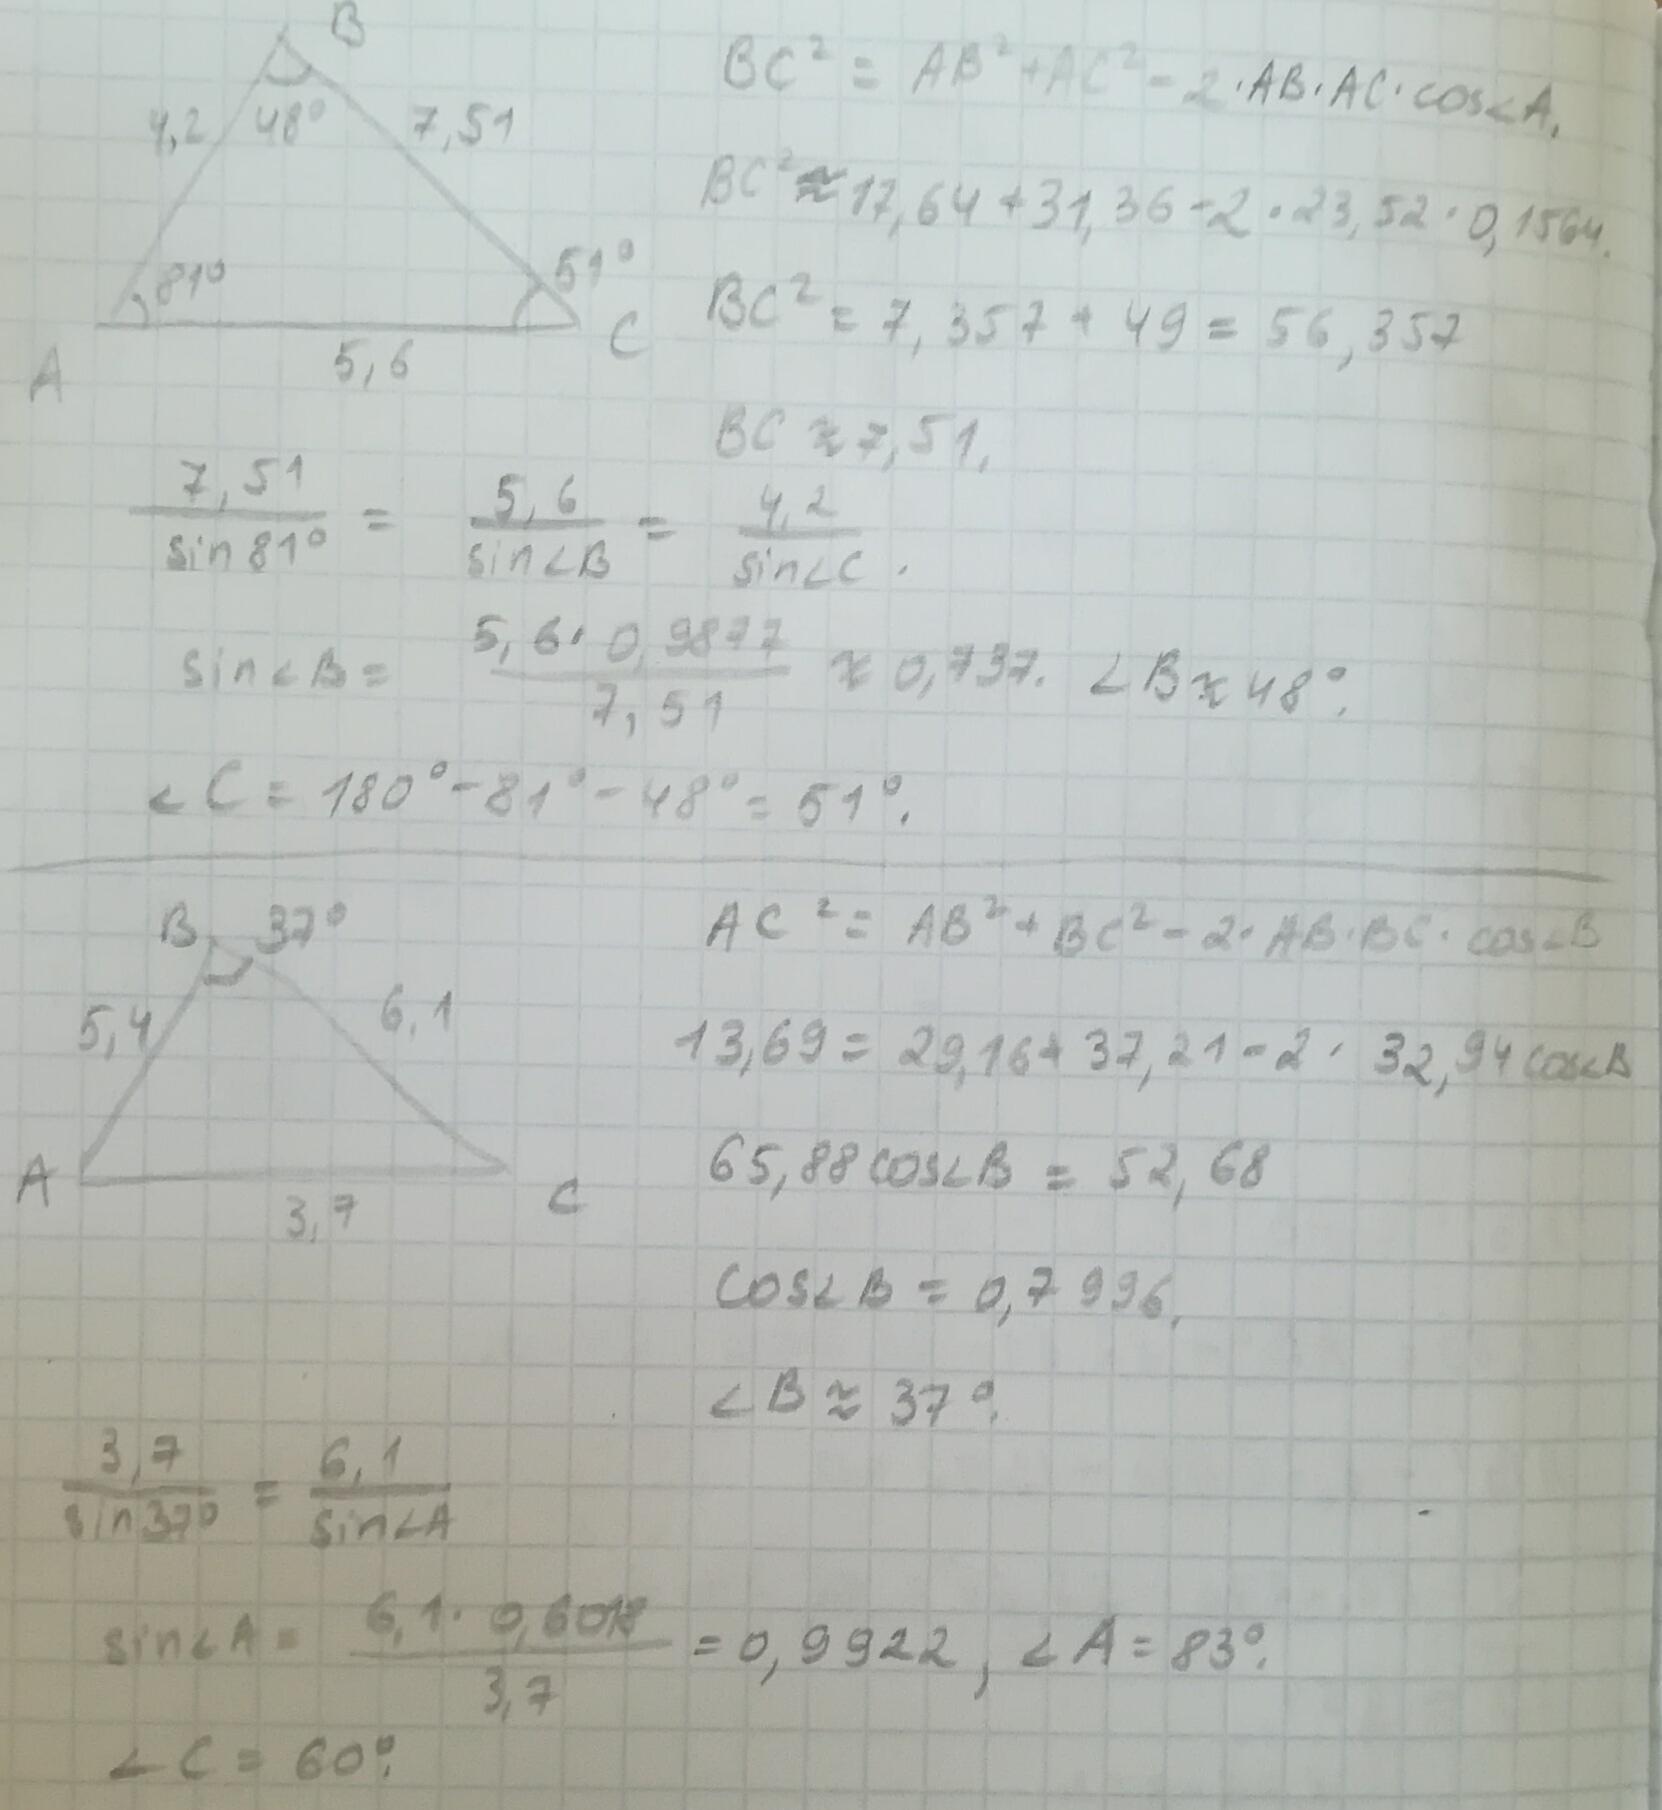 B
4,2 48° 7,51
81° 51°
A 5,6 C
BC² = AB² + AC² - 2 · AB · AC · cos∠A.
BC² ≈ 17,64 + 31,36 - 2 · 23,52 · 0,1564.
BC² = 7,357 + 49 = 56,357
BC ≈ 7,51.
7,51 / sin 81° = 5,6 / sin∠B = 4,2 / sin∠C .
sin∠B = 5,6 · 0,9877 / 7,51 ≈ 0,737. ∠B ≈ 48°.
∠C = 180° - 81° - 48° = 51°.
B 37°
5,4 6,1
A 3,7 C
AC² = AB² + BC² - 2 · AB · BC · cos∠B
13,69 = 29,16 + 37,21 - 2 · 32,94 cos∠B
65,88 cos∠B = 52,68
cos∠B = 0,7996.
∠B ≈ 37°.
3,7 / sin 37° = 6,1 / sin∠A
sin∠A = 6,1 · 0,6018 / 3,7 = 0,9922, ∠A = 83°.
∠C = 60°.